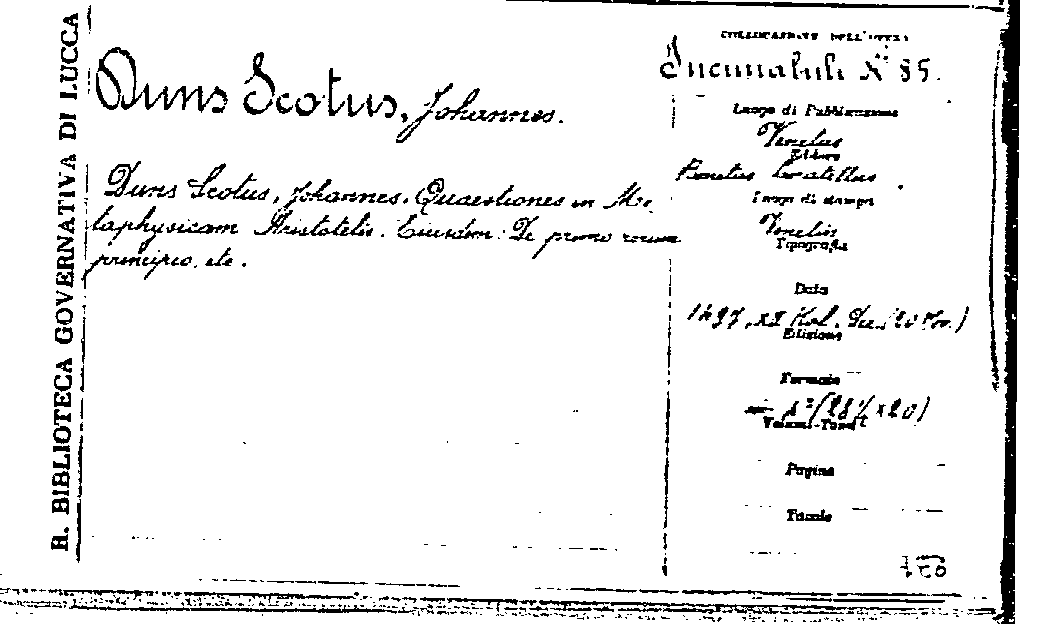 R. BIBLIOTECA GOVERNATIVA DI LUCCA
Duns Scotus, Johannes.
Duns Scotus, Johannes. Quaestiones in Me-
taphysicam Aristotelis. Eiusdem: De primo rerum
principio, etc.
COLLOCAZIONE DELL'OPERA
Incunabuli N° 85.
Luogo di Pubblicazione
Venetiis
Editore
Bonetus Locatellus
Luogo di stampa
Venetiis
Tipografia
Data
1497, XII Kal. Dec. (20 Nov.)
Edizione
Formato
(28½ x 20)
Volumi-Tomi
Pagine
Tavole